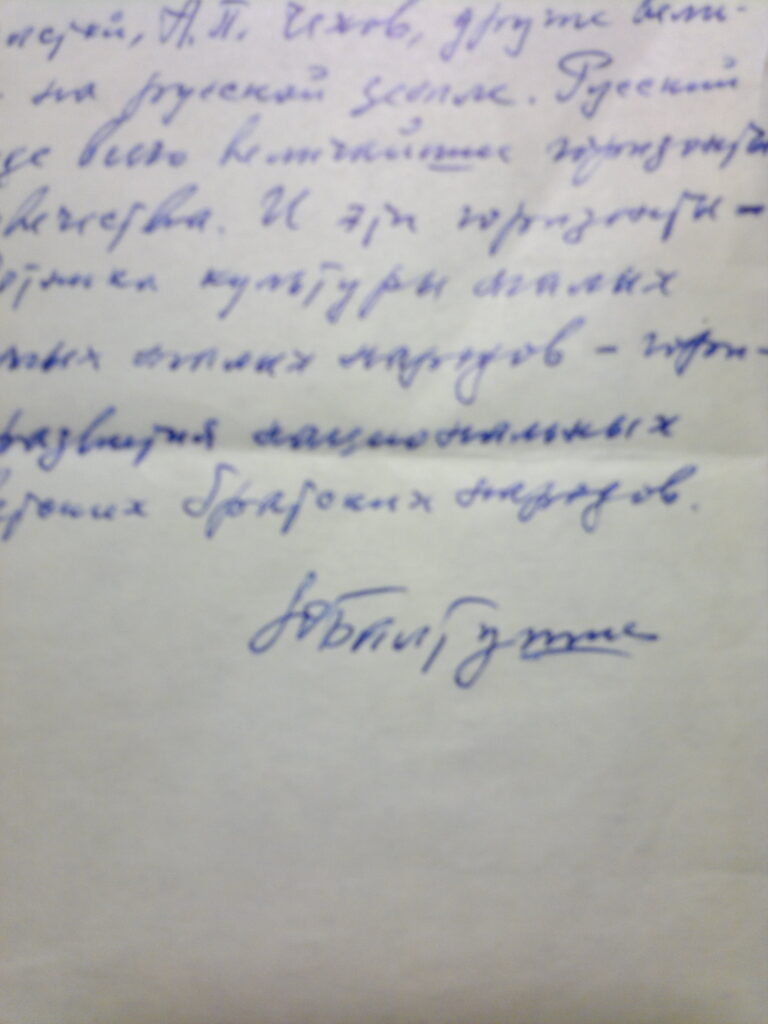 лстой, А.П. Чехов, другие вели-
на русской земле. Русский
де всего величайшие горизонты
вечества. И эти горизонты –
культуры малых
малых народов – гори-
развития национальных
братских народов.